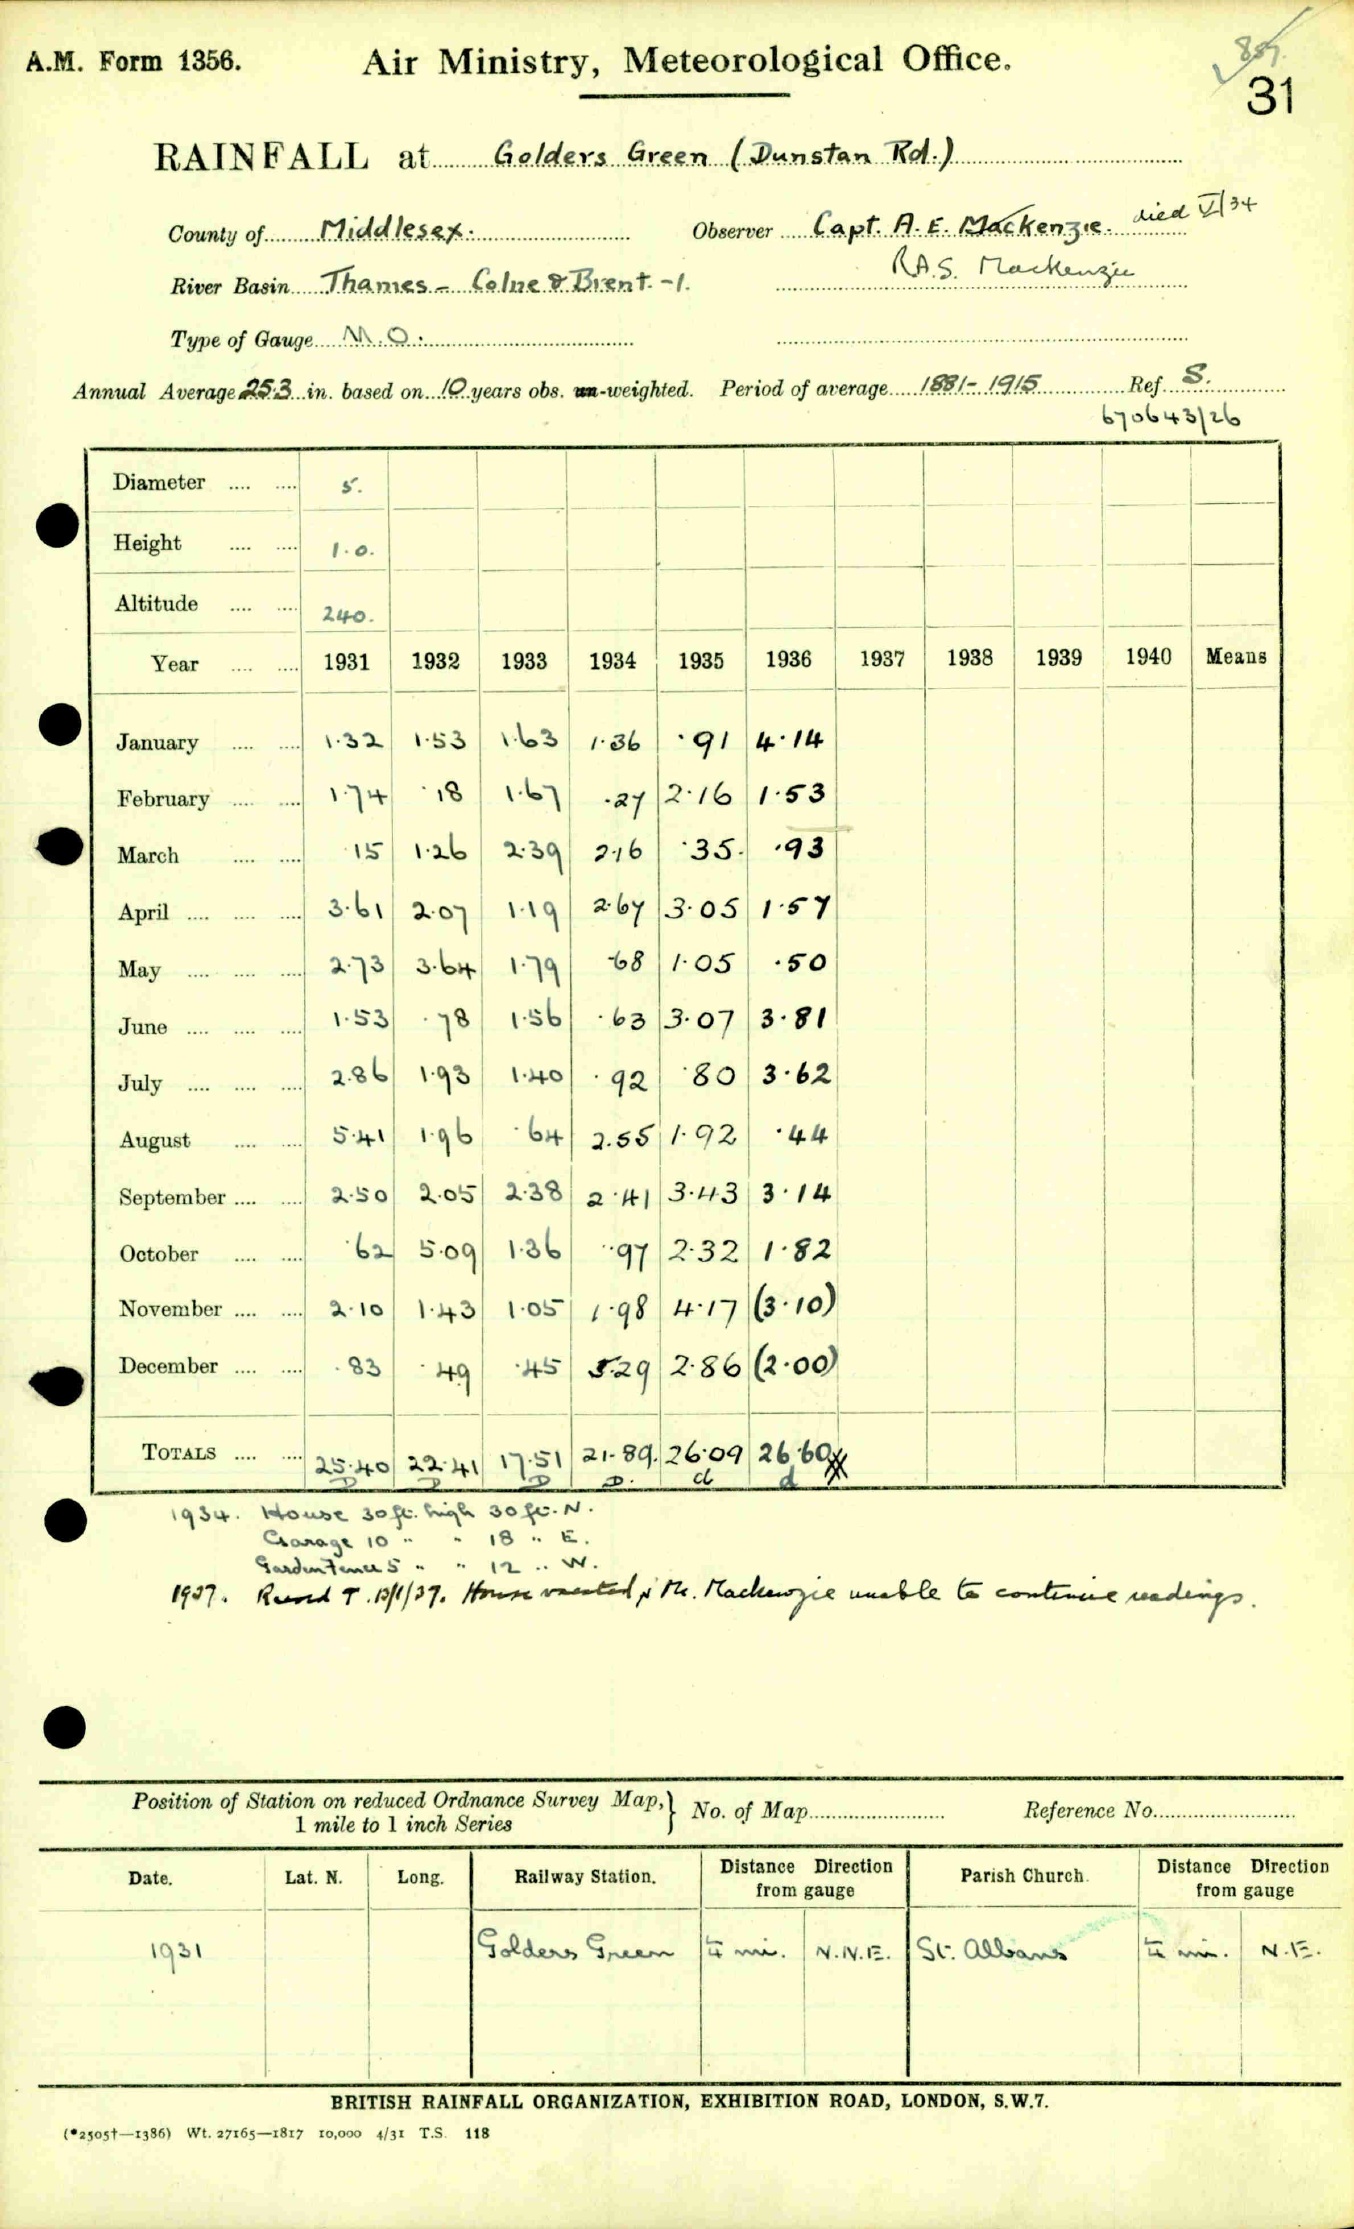 A.M. Form 1356. Air Ministry, Meteorological Office.
31
RAINFALL at Golders Green (Dunstan Rd.)
County of Middlesex. Observer Capt. A. E. Mackenzie. died V/34
R.A.S. Mackenzie
River Basin Thames - Colne & Brent. -1.
Type of Gauge M.O.
Annual Average 25.3 in. based on 10 years obs. un-weighted. Period of average 1881-1915 Ref S.
670643/26
Diameter .... .... 5.
Height .... .... 1.0.
Altitude .... .... 240.
Year .... .... 1931 1932 1933 1934 1935 1936 1937 1938 1939 1940 Means
January .... .... 1.32 1.53 1.63 1.36 .91 4.14
February .... .... 1.74 .18 1.67 .27 2.16 1.53
March .... .... .15 1.26 2.39 2.16 .35. .93
April .... .... .... 3.61 2.07 1.19 2.67 3.05 1.57
May .... .... .... 2.73 3.64 1.79 .68 1.05 .50
June .... .... .... 1.53 .78 1.56 .63 3.07 3.81
July .... .... .... 2.86 1.93 1.40 .92 .80 3.62
August .... .... 5.41 1.96 .64 2.55 1.92 .44
September .... .... 2.50 2.05 2.38 2.41 3.43 3.14
October .... .... .62 5.09 1.36 .97 2.32 1.82
November .... .... 2.10 1.43 1.05 1.98 4.17 (3.10)
December .... .... .83 .49 .45 5.29 2.86 (2.00)
TOTALS .... .... 25.40 22.41 17.51 21.89. 26.09 26.60
D D D D. d d
1934. House 30 ft. high 30 ft. N.
Garage 10 " " 18 " E.
Garden Fence 5 " " 12 " W.
1937. Record T. 13/1/37. House vacated & Mr. Mackenzie unable to continue readings.
Position of Station on reduced Ordnance Survey Map, } No. of Map Reference No.
1 mile to 1 inch Series
Date. Lat. N. Long. Railway Station. Distance Direction from gauge Parish Church. Distance Direction from gauge
1931 Golders Green ¼ mi. N.N.E. St. Albans ¼ mi. N.E.
BRITISH RAINFALL ORGANIZATION, EXHIBITION ROAD, LONDON, S.W.7.
(*2505†—1386) Wt. 27165—1817 10,000 4/31 T.S. 118